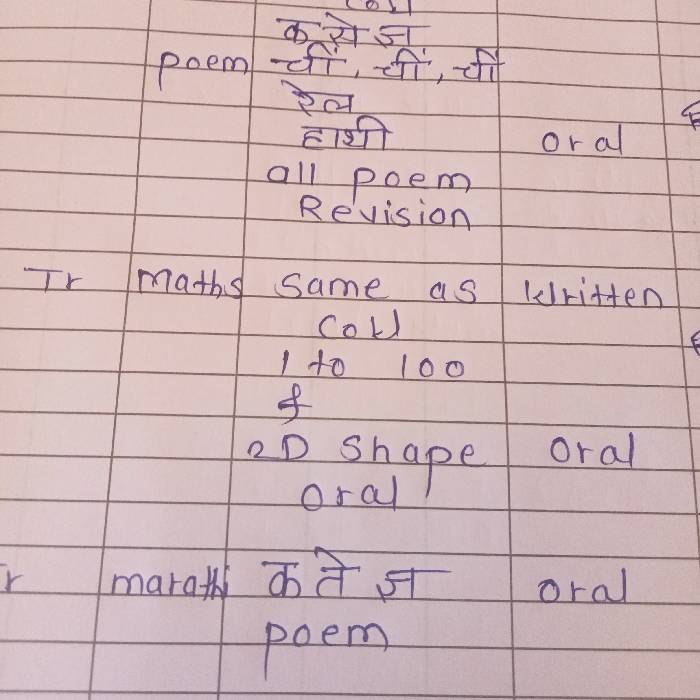 क से ज्ञ
poem चीं, चीं, चीं
रेल
हाथी oral
all poem
Revision
Tr Maths Same as Written
1 to 100
&
2D Shape oral
oral
marathi क ते ज्ञ oral
poem